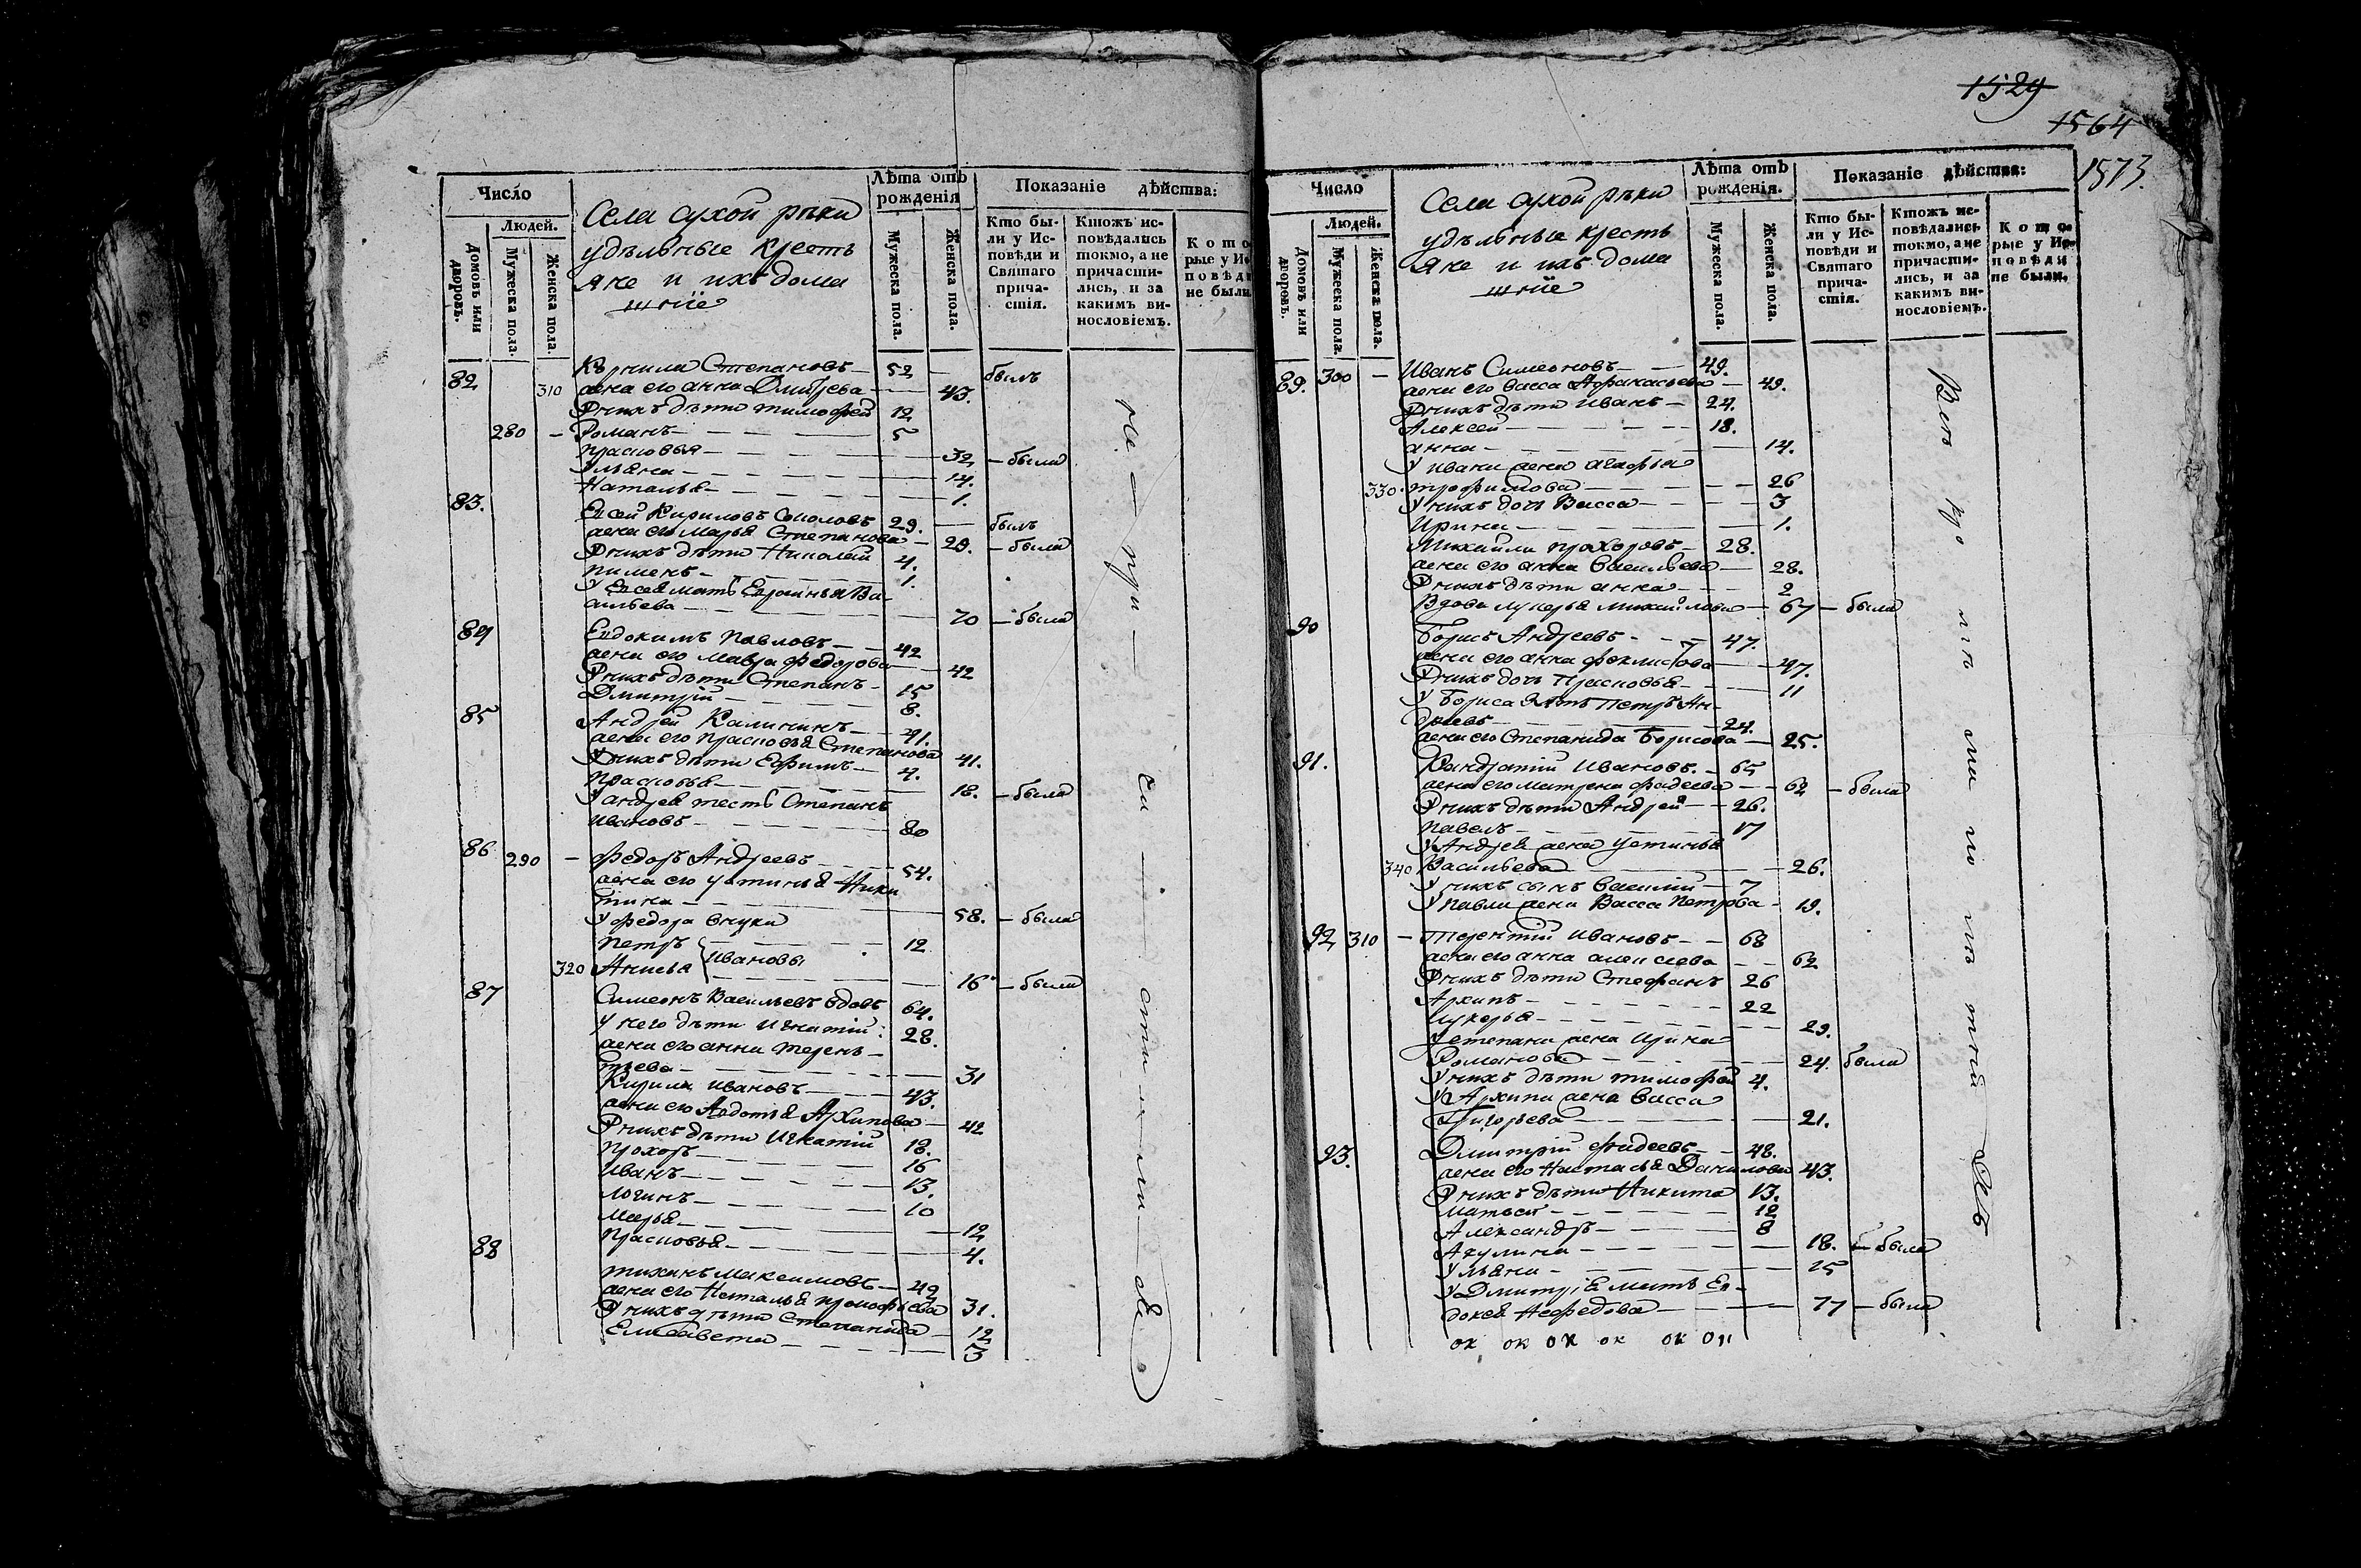 1529
1564
1573.
Число
Людей.
Домовъ или дворовъ.
Мужеска пола.
Женска пола.
Села сухой рѣки
удѣльные кресть
яне и ихъ дома
шніе
Лѣта отъ рожденія
Мужеска пола.
Женска пола.
Показаніе дѣйства:
Кто были у Исповѣди и Святаго причастія.
Ктожъ исповѣдались токмо, а не причастились, и за какимъ винословіемъ.
Которые у Исповѣди не были
82 310 Степановъ — 52 — былъ
жена его анна Дмитрева — 43.
У нихъ дѣти тимофей 12
280 — Романъ — 5
прасковья — 32 — была
Ульяна — 14.
Наталья — 1.
83. Кириловъ 29. — былъ
жена его Марья Степанова — 29. — была
У нихъ дѣти Николай 4.
пименъ — 1.
У мать Ва
сильева — 70 — была
84 Евдокимъ Павловъ — 42
жена его Мавра федорова — 42
У нихъ дѣти Степанъ — 15
Дмитрій — 8.
85 Андрей Калининъ — 41.
жена его прасковья Степанова 41.
У нихъ дѣти Ефимъ — 4.
прасковья — 18. — была
У андрея тесть Степанъ
Ивановъ — 80
86 290 — Федоръ Андреевъ — 54.
жена его устинья Ники
тина — 58. — была
У федора внуки
петръ Ивановы — 12
320 Анисья — 16 — была
87 Симеонъ Васильевъ вдовъ 64.
У него дѣти игнатій 28.
жена его анна терень-
тьева — 31
Кирила ивановъ — 43.
жена его Авдотья Архипова — 42
У нихъ дѣти Игнатій 18.
прохоръ — 16
иванъ — 13.
логинъ — 10
марья — 12
прасковья — 4.
88 тиханъ максимовъ — 42
жена его Наталья прокофьева 31.
У нихъ дѣти Степанида — 12
Елисавета — 3
не — при — ча — сти — ли — ся
Число
Людей.
Домовъ или дворовъ.
Мужеска пола.
Женска пола.
Села сухой рѣки
удѣльные кресть
яне и ихъ дома
шніе
Лѣта отъ рожденія.
Мужеска пола.
Женска пола.
Показаніе дѣйства:
Кто были у Исповѣди и Святаго причастія.
Ктожъ исповѣдались токмо, а не причастились, и за какимъ винословіемъ.
Которые у Исповѣди не были.
89. 300 — Иванъ Симеоновъ — 49.
жена его васса Афанасьева — 49.
У нихъ дѣти иванъ — 24.
Алексей — 18.
анна — 14.
У ивана жена агафья
330. трофимова — 26
У нихъ дочь Васса — 3
Ирина — 1.
Михайла прохоровъ — 28.
жена его анна васильева — 28.
У нихъ дѣти анна — 2
Вдова лукерья михайлова — 67 — была
90 Борисъ Андреевъ — 47.
жена его анна феклистова — 47.
У нихъ дочь Прасковья — 11
У Бориса зять Петръ Ан-
дреевъ — 24.
жена его Степанида Борисова — 25.
91. Кандратій Ивановъ. — 65
жена его матрена фадеева — 62 — была
У нихъ дѣти Андрей — 26.
павелъ — 17
У Андрея жена устинья
340 Васильева — 26.
У нихъ сынъ василій — 7
У павла жена Васса петрова — 19.
92 310 — терентій Ивановъ — 68
жена его анна алексеева — 62
У нихъ дѣти Стефанъ 26
Архипъ — 22
лукерья — 29.
У степана жена ирина
Романова — 24. была
У нихъ дѣти тимофей 4.
У Архипа жена васса
Григорьева — 21.
93. Дмитрій фадеевъ — 48.
жена его Наталья Данилова 43.
У нихъ дѣти Никита 13.
матвей — 12
Александръ — 8
Акулина — 18. — была
Ульяна — 15
У Дмитрія мать Ев-
докея Нефедова — 77 — была